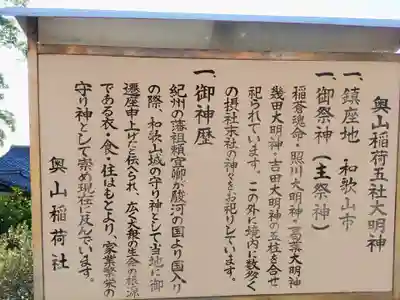 奥山稲荷五社大明神
一、鎮座地 和歌山市
一、御祭神(主祭神)
稲蒼魂命・照川大明神・言葉大明神
幾田大明神・吉田大明神の五柱を合せ
祀られています。この外、境内に数多く
の摂社末社の神々をお祀りしています。
一、御神歴
紀州の藩祖頼宣卿が駿河の国より国入り
の際、和歌山城の守り神として当地に御
遷座申上げたと伝えられ、広く大衆の生命の根源
である衣・食・住はもとより、家業繁栄の
守り神として崇め現在に及んでいます。
奥山稲荷社